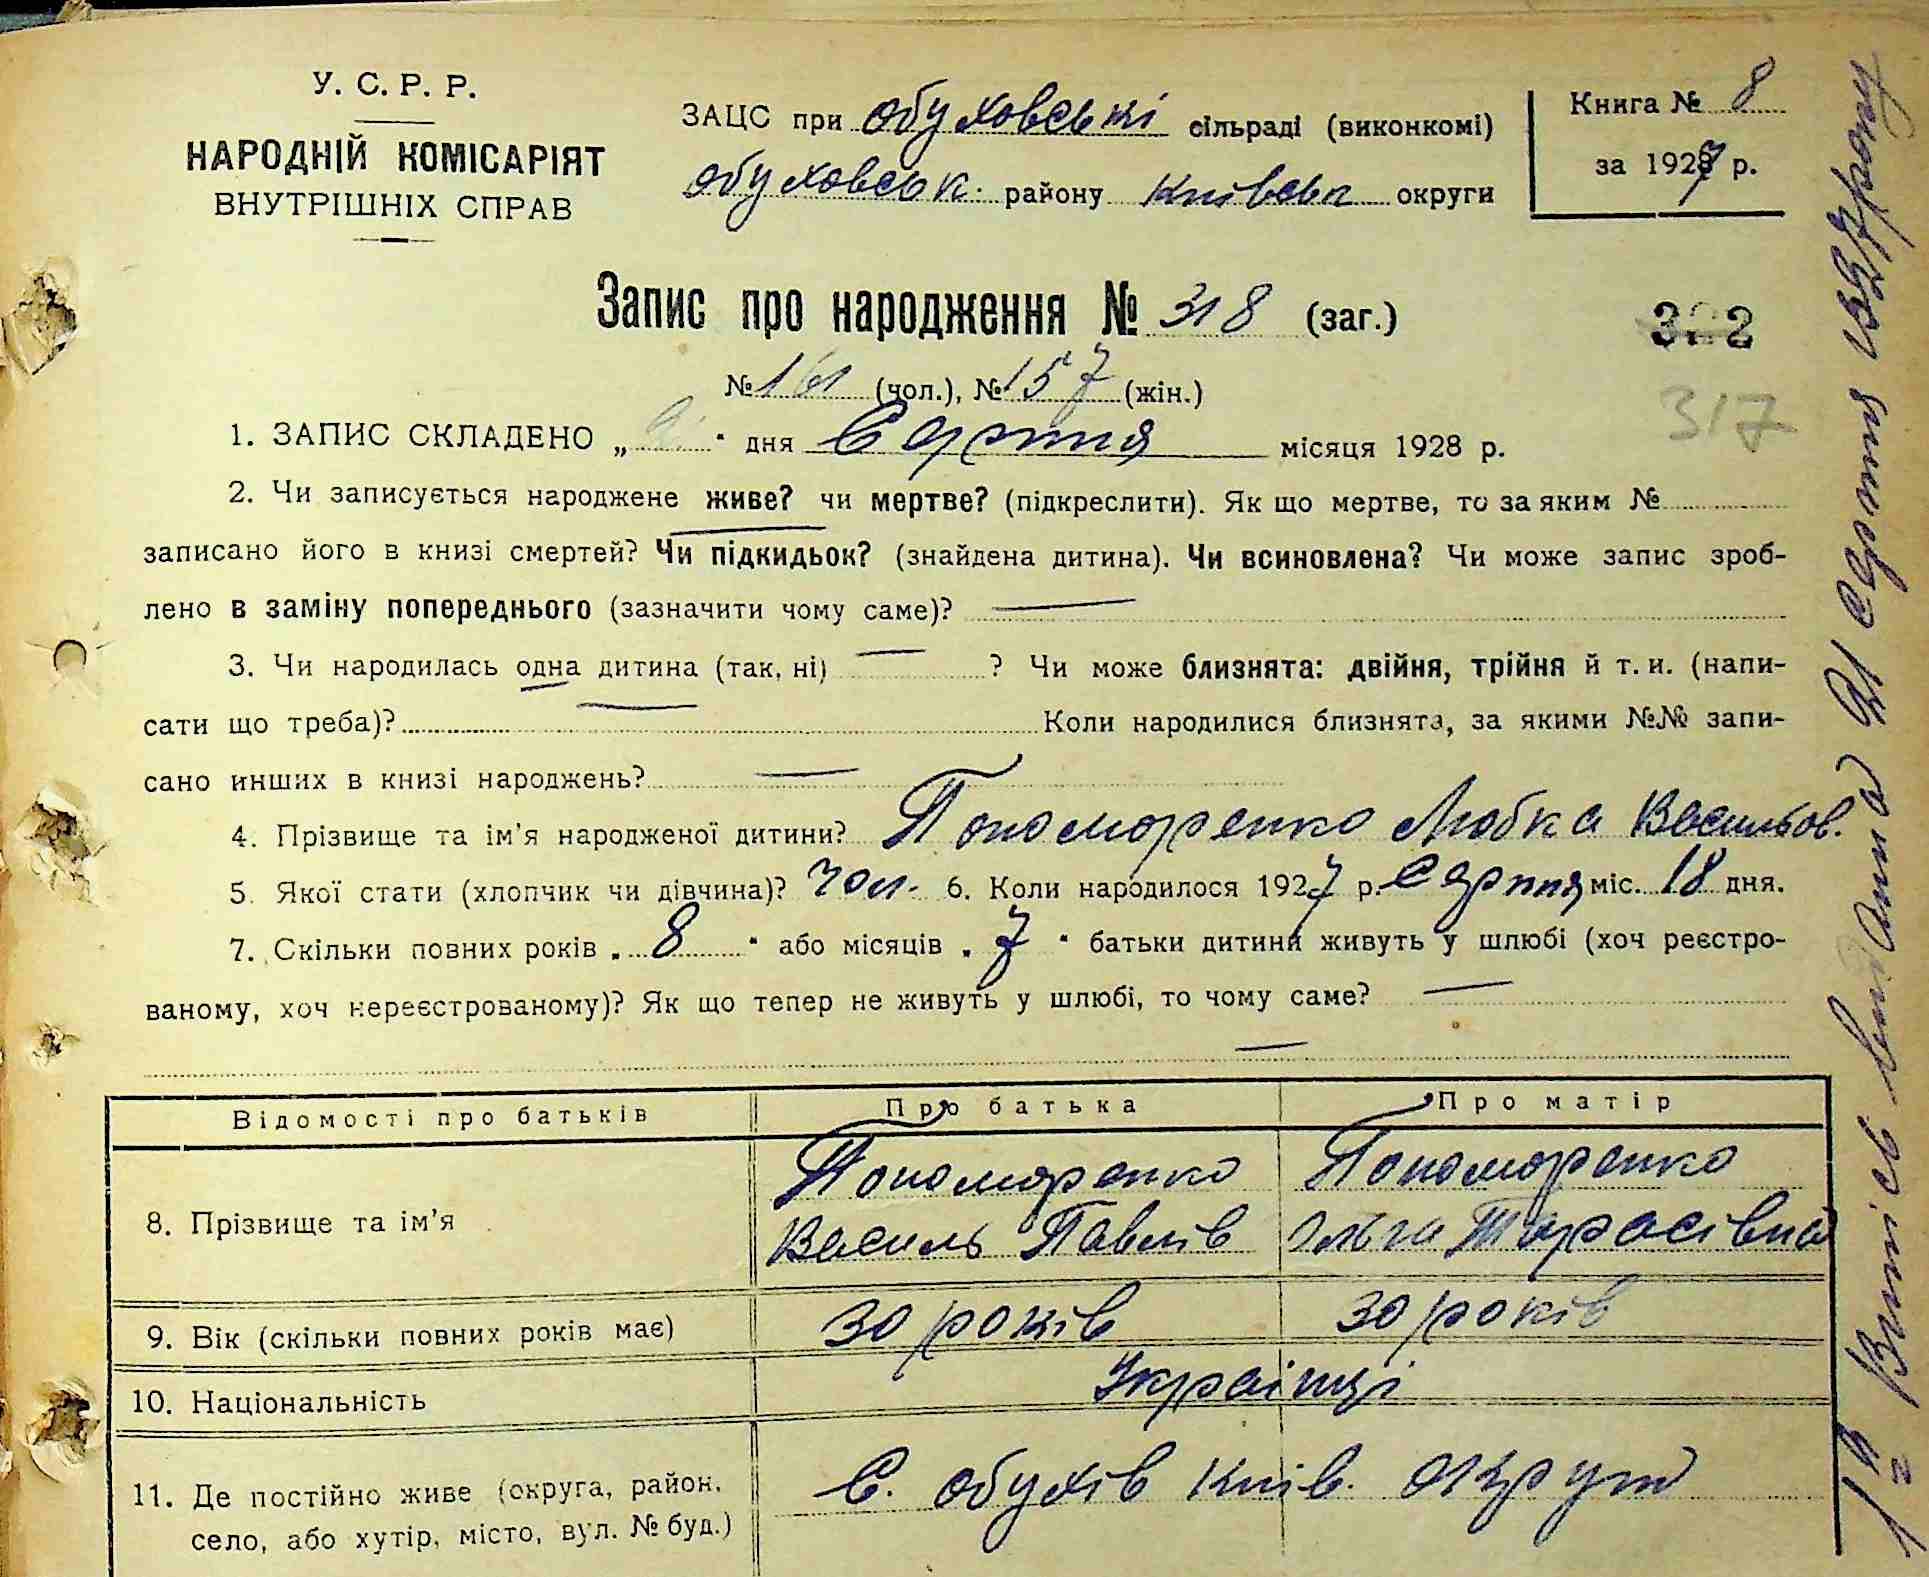 У. С. Р. Р.
НАРОДНІЙ КОМІСАРІЯТ
ВНУТРІШНІХ СПРАВ
ЗАЦС при Обуховські сільраді (виконкомі)
Обуховськ. району Київськ округи
Книга № 8
за 1927 р.
Запис про народження № 318 (заг.)
322
№ 161 (чол.), № 157 (жін.)
317
1. ЗАПИС СКЛАДЕНО „ " дня Серпня місяця 1928 р.
2. Чи записується народжене живе? чи мертве? (підкреслити). Як що мертве, то за яким №
записано його в книзі смертей? Чи підкидьок? (знайдена дитина). Чи всиновлена? Чи може запис зроб-
лено в заміну попереднього (зазначити чому саме)? —
3. Чи народилась одна дитина (так, ні) — ? Чи може близнята: двійня, трійня й т. и. (напи-
сати що треба)? — Коли народилися близнята, за якими №№ запи-
сано инших в книзі народжень? —
4. Прізвище та ім'я народженої дитини? Пономаренко Любка Васильов.
5. Якої стати (хлопчик чи дівчина)? чол. 6. Коли народилося 1927 р. Серпня міс. 18 дня.
7. Скільки повних років „ 8 " або місяців „ 7 " батьки дитини живуть у шлюбі (хоч реєстро-
ваному, хоч нереєстрованому)? Як що тепер не живуть у шлюбі, то чому саме? —
—
Відомості про батьків Про батька Про матір
8. Прізвище та ім'я
Пономаренко Пономаренко
Василь Павлів Ольга Тарасівна
9. Вік (скільки повних років має) 30 років 30 років
10. Національність Українці
11. Де постійно живе (округа, район,
село, або хутір, місто, вул. № буд.)
С. Обухів Київ. округи
Витяг видана 21 серпня 1927 року